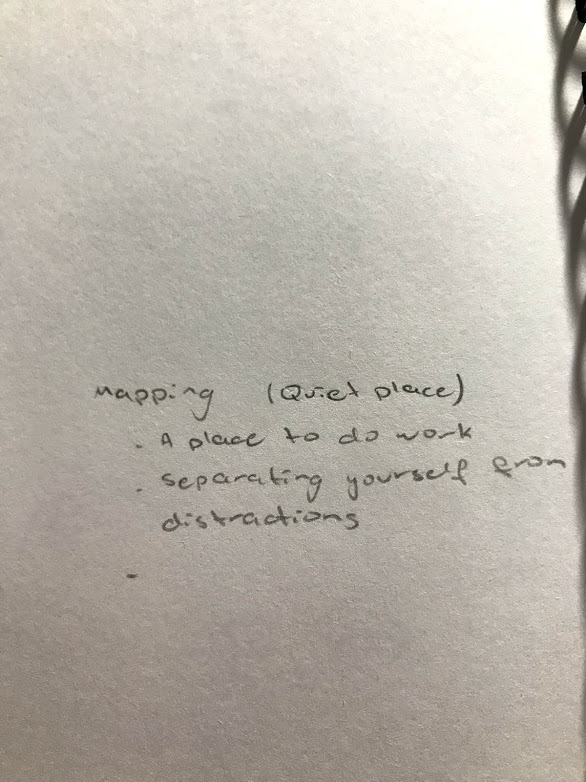 Mapping (Quiet place)
. A place to do work
. Separating yourself from
distractions
-